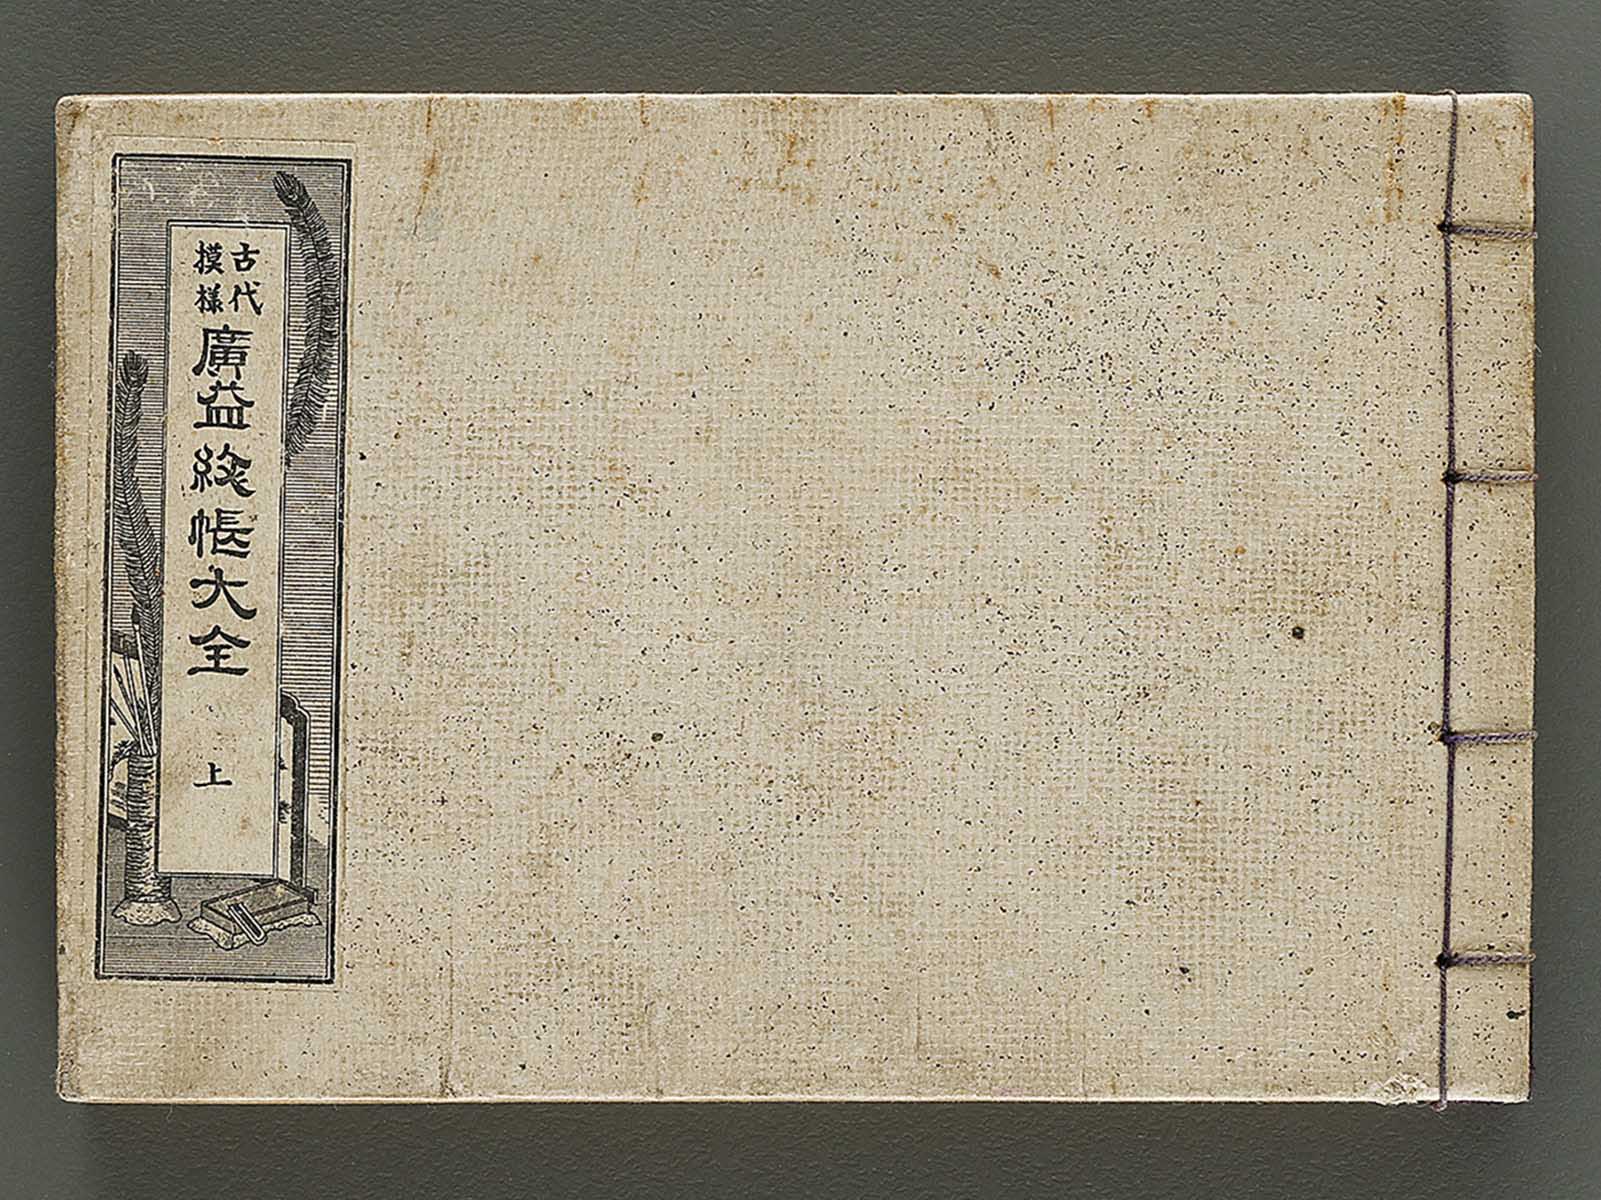 古代
摸様
廣益紋帳大全
上